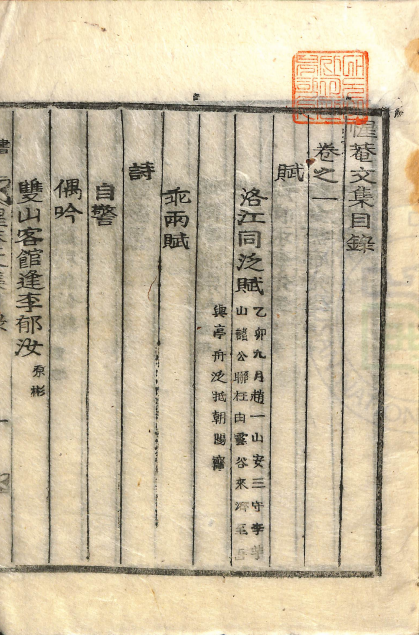 惺菴文集目錄
卷之一
賦
洛江同泛賦
乙卯九月趙一山安三守李
山諸公聯枉由雲谷來濟
與亭舟泛抵朝陽臺
乖雨賦
詩
自警
偶吟
雙山客館逢李郁汝